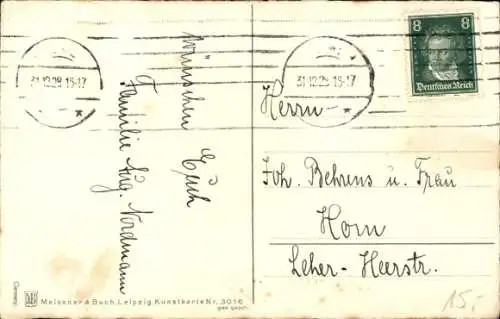 wünschen Euch
Familie Aug. Nordmann
31.12.28.15-17
31.12.28.15-17
8 8
Deutsches Reich
Herrn
Joh. Behrens u. Frau
Horn
Leher-Heerstr.
Meissner & Buch, Leipzig. Kunstkarte Nr. 3016
Germany
15,-